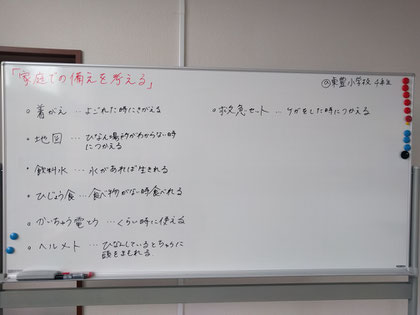 「家庭での備えを考える」
東豊小学校 4年生
○着がえ…よごれた時にきがえる
○地図…ひなん場所がわからない時
につかえる
○飲料水…水があれば生きれる
○ひじょう食…食べ物がない時食べれる
○かいちゅう電とう…くらい時に使える
○ヘルメット…ひなんしているとちゅうに
頭をまもれる
○救急セット…ケガをした時につかえる